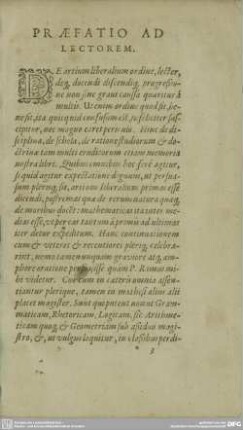 PRÆFATIO AD
LECTOREM.
DE artium liberalium ordine, lector,
deq, docendi discendiq, progressio-
ne non sine gravi caussa quæritur à
multis. Ut enim ordine quod fit, be-
ne fit, ita quicquid confusum est, infeliciter sus-
cipitur, nec magno caret periculo. Hinc de di-
sciplina, de schola, de ratione studiorum &
doctrinæ tam multi eruditorum etiam memoria
nostra libri. Quibus omnibus hoc fere agitur,
si quid agitur expectatione dignum, ut
persuasum plerisq, sit, artium liberalium primas esse
docendi, postremas quæ de rerum natura quæq,
de moribus docent: mathematicas ita inter me-
dias esse, ut per eas tantum à primis ad ultimas
iter detur expeditum. Hanc continuationem
cum & veteres & recentiores pleriq, celebra-
rint, nemo tamen unquam graviore atq,
ampliore oratione quàm P. Ramus mi-
hi videtur. Cui cum in cæteris omnia assen-
tiantur plerique, tamen in mathesi alius alii
placet magister. Sunt qui putent non ut Gram-
maticam, Rhetoricam, Logicam, sic Arithme-
ticam quoq, & Geometriam sub assiduo magi-
stro, &, ut vulgus loquitur, in classibus perdi-